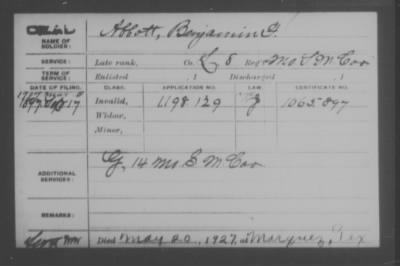 NAME OF SOLDIER: Abbott, Benjamin F.
SERVICE: Late rank, Co. L 8 Reg't Mo S M Cav
TERM OF SERVICE: Enlisted , 1 Discharged , 1
DATE OF FILING. CLASS. APPLICATION NO. LAW. CERTIFICATE NO.
1897 17 Invalid, 1198 129 1065 897
Widow,
Minor,
ADDITIONAL SERVICES: G, 14 Mo. S. M. Cav
REMARKS:
Died May 20, 1927, at Marquez, Tex